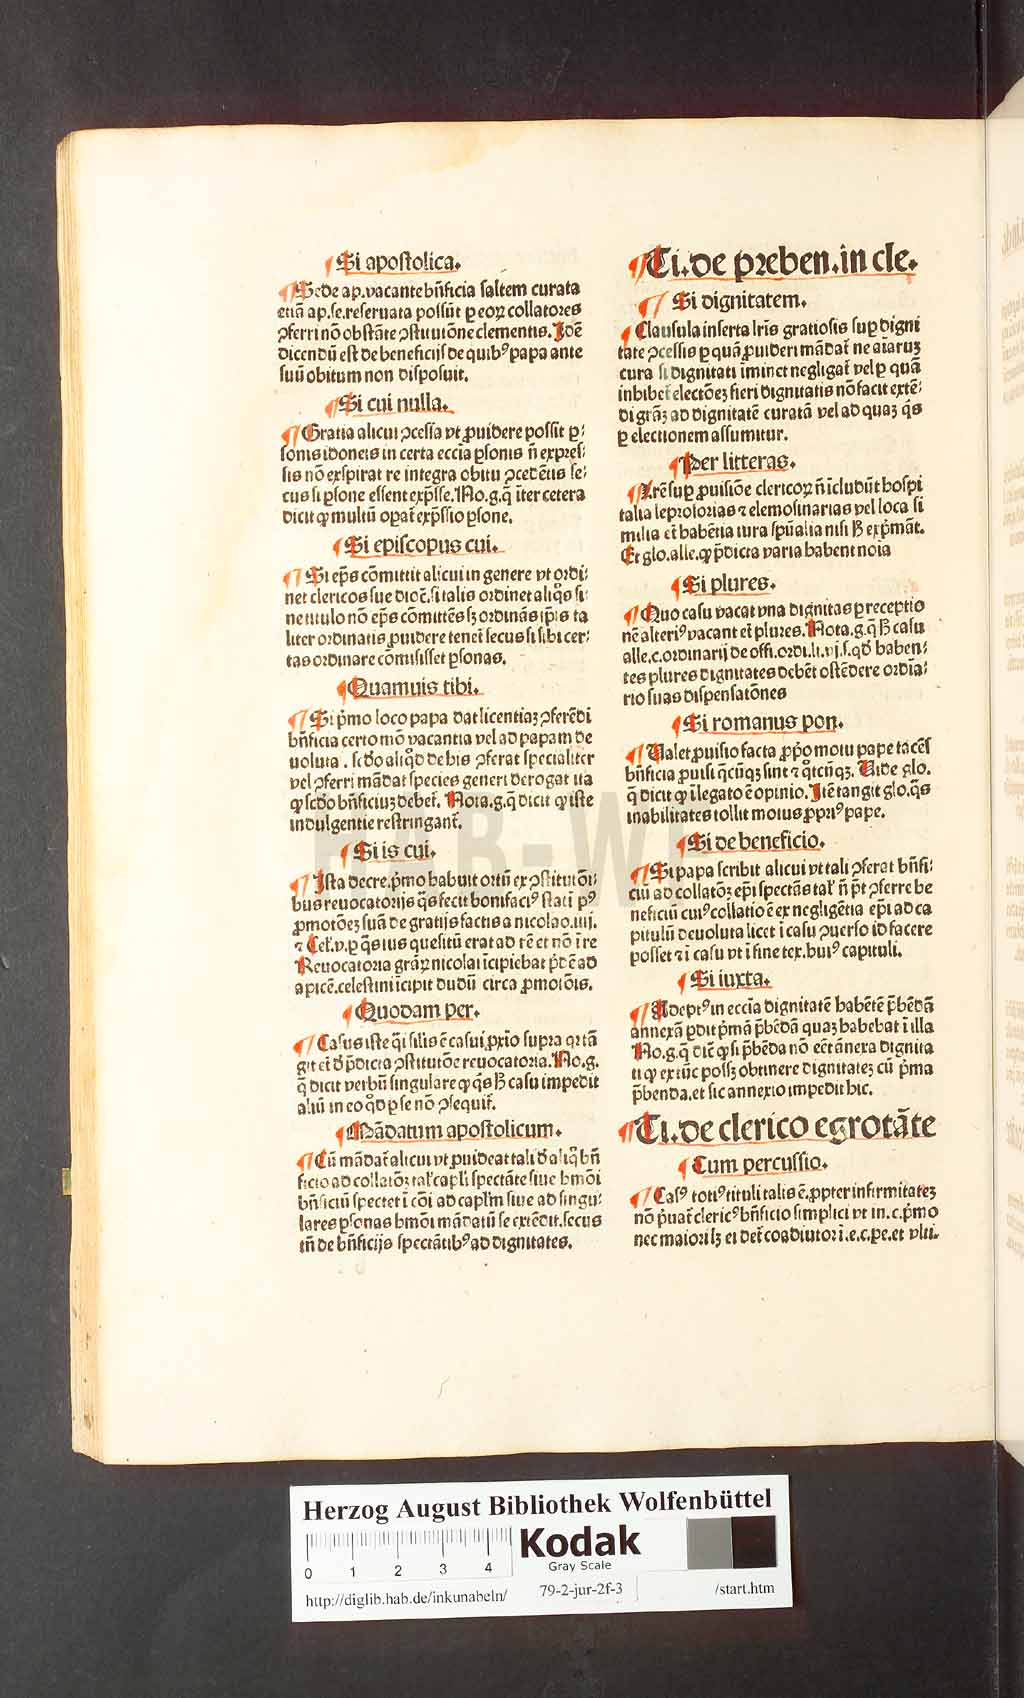 ¶ Si apostolica.
¶ Sede ap. vacante bn̄ficia saltem curata
etiā ap. se. reseruata possūt ꝑ eoꝝ collatores
ꝯferri nō obstāte ꝯstitutōne clementis. Idē
dicendū est de beneficijs de quibꝰ papa ante
suū obitum non disposuit.
¶ Si cui nulla.
¶ Gratia alicui ꝯcessa vt ꝓuidere possit ꝑ⸗
sonis idoneis in certa eccīa ꝑsonis n̄ expres⸗
sis nō exspirat re integra obitu ꝯcedētis se⸗
cus si ꝑsone essent exp̄sse. No. g. q̄ īter cetera
dicit ꝙ multū opat̄ exp̄ssio ꝑsone.
¶ Si episcopus cui.
¶ Si ep̄s cōmittit alicui in genere vt ordi⸗
net clericos sue dioc̄. si talis ordinet aliq̊s si⸗
ne titulo nō ep̄s cōmittēs sꝫ ordinās ip̄is ta
liter ordinatis ꝓuidere tenet̄ secus si sibi cer⸗
tas ordinare cōmisisset ꝑsonas.
¶ Quamuis tibi.
¶ Si p̄mo loco papa dat licentiaꝫ ꝯferēdi
bn̄ficia certo mō vacantia vel ad papam de
uoluta. scd̄o aliq̊d de his ꝯferat specialiter
vel ꝯferri mādat species generi derogat ita
ꝙ scd̄o bn̄ficiuꝫ debet̄. Nota. g. q̄ dicit ꝙ iste
indulgentie restringant̄.
¶ Si is cui.
¶ Ista decre. p̄mo habuit ortū ex ꝯstitutōi⸗
bus reuocatorijs q̄s fecit bonifaciꝰ stati pꝰ
ꝓmotōeꝫ suā de gratijs factis a nicolao. iiij.
⁊ Cel. v. ꝑ q̄s ius quesitū erat ad rē et nō ī re
Reuocatoria gr̄aꝝ nicolai īcipiebat p̄dē ad
apicē. celestini īcipit dudū circa ꝓmoiōis.
¶ Quodam per.
¶ Casus iste q̄i silis ē casui ꝓxīo supra qꝛ tā
git et̄ d̄ p̄dicta ꝯstitutōe reuocatoria. No. g.
q̄ dicit verbū singulare ꝙ q̄s hꝫ casu impedit
aliū in eo q̊d ꝑ se nō ꝯsequit̄.
¶ Mādatum apostolicum.
¶ Cū mādat̄ alicui vt ꝓuideat tali d̄ aliq̊ bn̄
ficio ad collatōꝫ tal̄ capl̄i spectāte siue hmōi
bn̄ficiū spectet ī cōi ad capl̄m siue ad singu⸗
lares ꝑsonas hmōi mādatū se extēdit. secus
tn̄ de bn̄ficijs spectātibꝰ ad dignitates.
¶ Ti. de preben. in cle.
¶ Si dignitatem.
¶ Clausula inserta lr̄is gratiosis suꝑ digni
tate ꝯcessis ꝑ quā ꝓuideri mādat̄ ne aīaruꝫ
cura si dignitati īminet negligat̄ vel ꝑ quā
inhibet̄ electōeꝫ fieri dignitatis nō facit extē⸗
di gr̄aꝫ ad dignitatē curatā vel ad quaꝫ q̄s
ꝑ electionem assumitur.
¶ Per litteras.
¶ Lr̄e suꝑ ꝓuisiōe clericoꝝ n̄ īcludūt hospi
talia leprosorias ⁊ elemosinarias vel loca si
milia et̄ habētia iura spūalia nisi hꝫ exp̄māt̄.
Et glo. alle. ꝙ p̄dicta varia habent noīa
¶ Si plures.
¶ Quo casu vacat vna dignitas ꝑ receptio
nē alteriꝰ vacant et̄ plures. Nota. g. q̄ hꝫ casu
alle. c. ordinarij de offi. ordi. li. vj. s. qd̄ haben⸗
tes plures dignitates debēt ostēdere ordīa⸗
rio suas dispensatōnes
¶ Si romanus pon.
¶ Ualet ꝓuisio facta ꝓp̊o motu pape tacēs̄
bn̄ficia ꝓuisi q̄cūqꝫ sint ⁊ q̊tcūqꝫ. Uide glo.
q̄ dicit ꝙ ī legato ē opinio. Itē tangit glo. q̄s
inabilitates tollit motus ꝓpriꝰ pape.
¶ Si de beneficio.
¶ Si papa scribit alicui vt tali ꝯferat bn̄fi⸗
ciū ad collatōꝫ ep̄i spectās tal̄ n̄ p̄t ꝯferre be
neficiū cuiꝰ collatio ē ex negligētia ep̄i ad ca
pitulū deuoluta licet ī casu ꝯuerso id facere
posset ⁊ ī casu vt ī fine tex. huiꝰ capituli.
¶ Si iuxta.
¶ Adeptꝰ in eccīa dignitatē habētē p̄bēdā
annexā ꝑdit p̄mā p̄bēdā quaꝫ habebat ī illa
No. g. q̄ dic̄ ꝙ si p̄bēda nō eēt ānexa dignita
ti ꝙ extūc possꝫ obtinere dignitateꝫ cū p̄ma
p̄benda. et sic annexio impedit hic.
¶ Ti. de clerico egrotāte
¶ Cum percussio.
¶ Casꝰ totiꝰ tituli talis ē. ꝓpter infirmitateꝫ
nō p̄uat̄ clericꝰ bn̄ficio simplici vt in. c. p̄mo
nec maiori sꝫ ei det̄ coadiutor ī. e. c. ꝑe. et vlti.
HAB-WF
Herzog August Bibliothek Wolfenbüttel
0 1 2 3 4
Kodak
Gray Scale
http://diglib.hab.de/inkunabeln/ 79-2-jur-2f-3 /start.htm